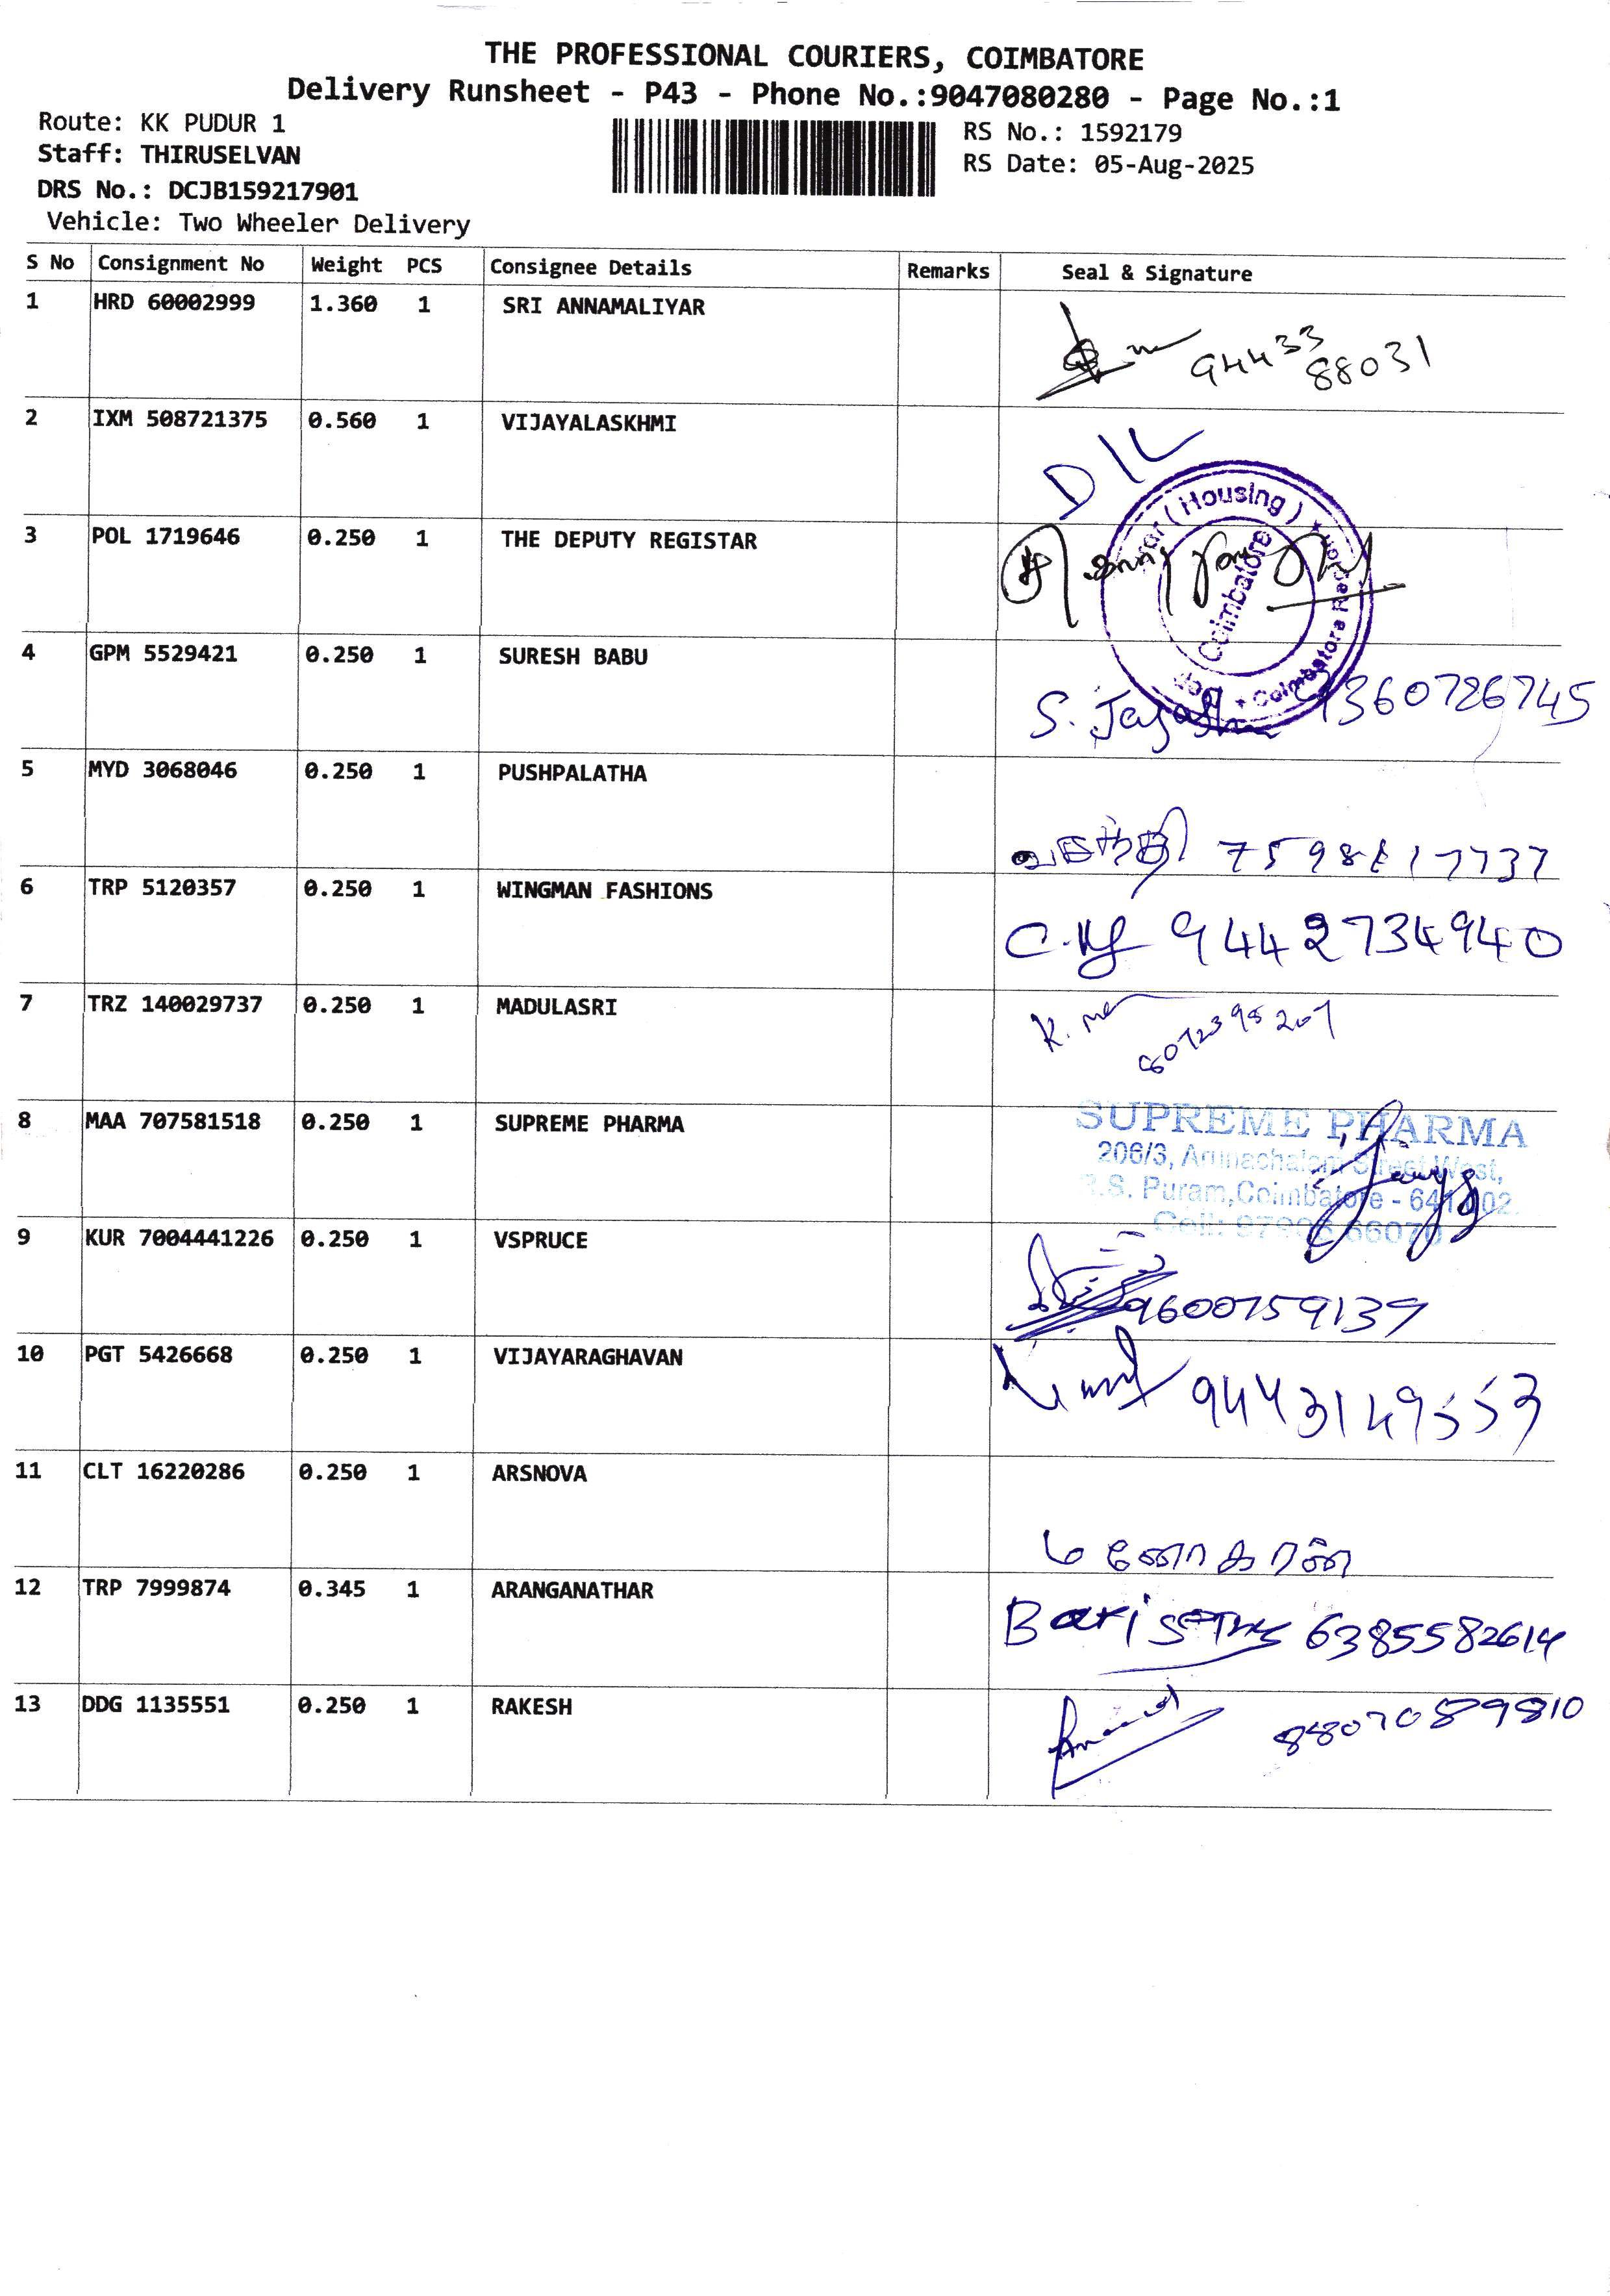 THE PROFESSIONAL COURIERS, COIMBATORE
Delivery Runsheet - P43 - Phone No.:9047080280 - Page No.:1
Route: KK PUDUR 1
RS No.: 1592179
Staff: THIRUSELVAN
RS Date: 05-Aug-2025
DRS No.: DCJB159217901
Vehicle: Two Wheeler Delivery
S No Consignment No Weight PCS Consignee Details Remarks Seal & Signature
1 HRD 60002999 1.360 1 SRI ANNAMALIYAR
94433
88031
2 IXM 508721375 0.560 1 VIJAYALASKHMI
D/L
(Housing)
Coimbatore
3 POL 1719646 0.250 1 THE DEPUTY REGISTAR
4 GPM 5529421 0.250 1 SURESH BABU
S. 9360726745
5 MYD 3068046 0.250 1 PUSHPALATHA
6 TRP 5120357 0.250 1 WINGMAN FASHIONS
9442734940
7 TRZ 140029737 0.250 1 MADULASRI
8 MAA 707581518 0.250 1 SUPREME PHARMA
SUPREME PHARMA
206/3, Arunachalam Street West,
R.S. Puram, Coimbatore - 641 002.
9 KUR 7004441226 0.250 1 VSPRUCE
9600759139
10 PGT 5426668 0.250 1 VIJAYARAGHAVAN
9443149553
11 CLT 16220286 0.250 1 ARSNOVA
மனோகரன்
12 TRP 7999874 0.345 1 ARANGANATHAR
6385582614
13 DDG 1135551 0.250 1 RAKESH
8807089810